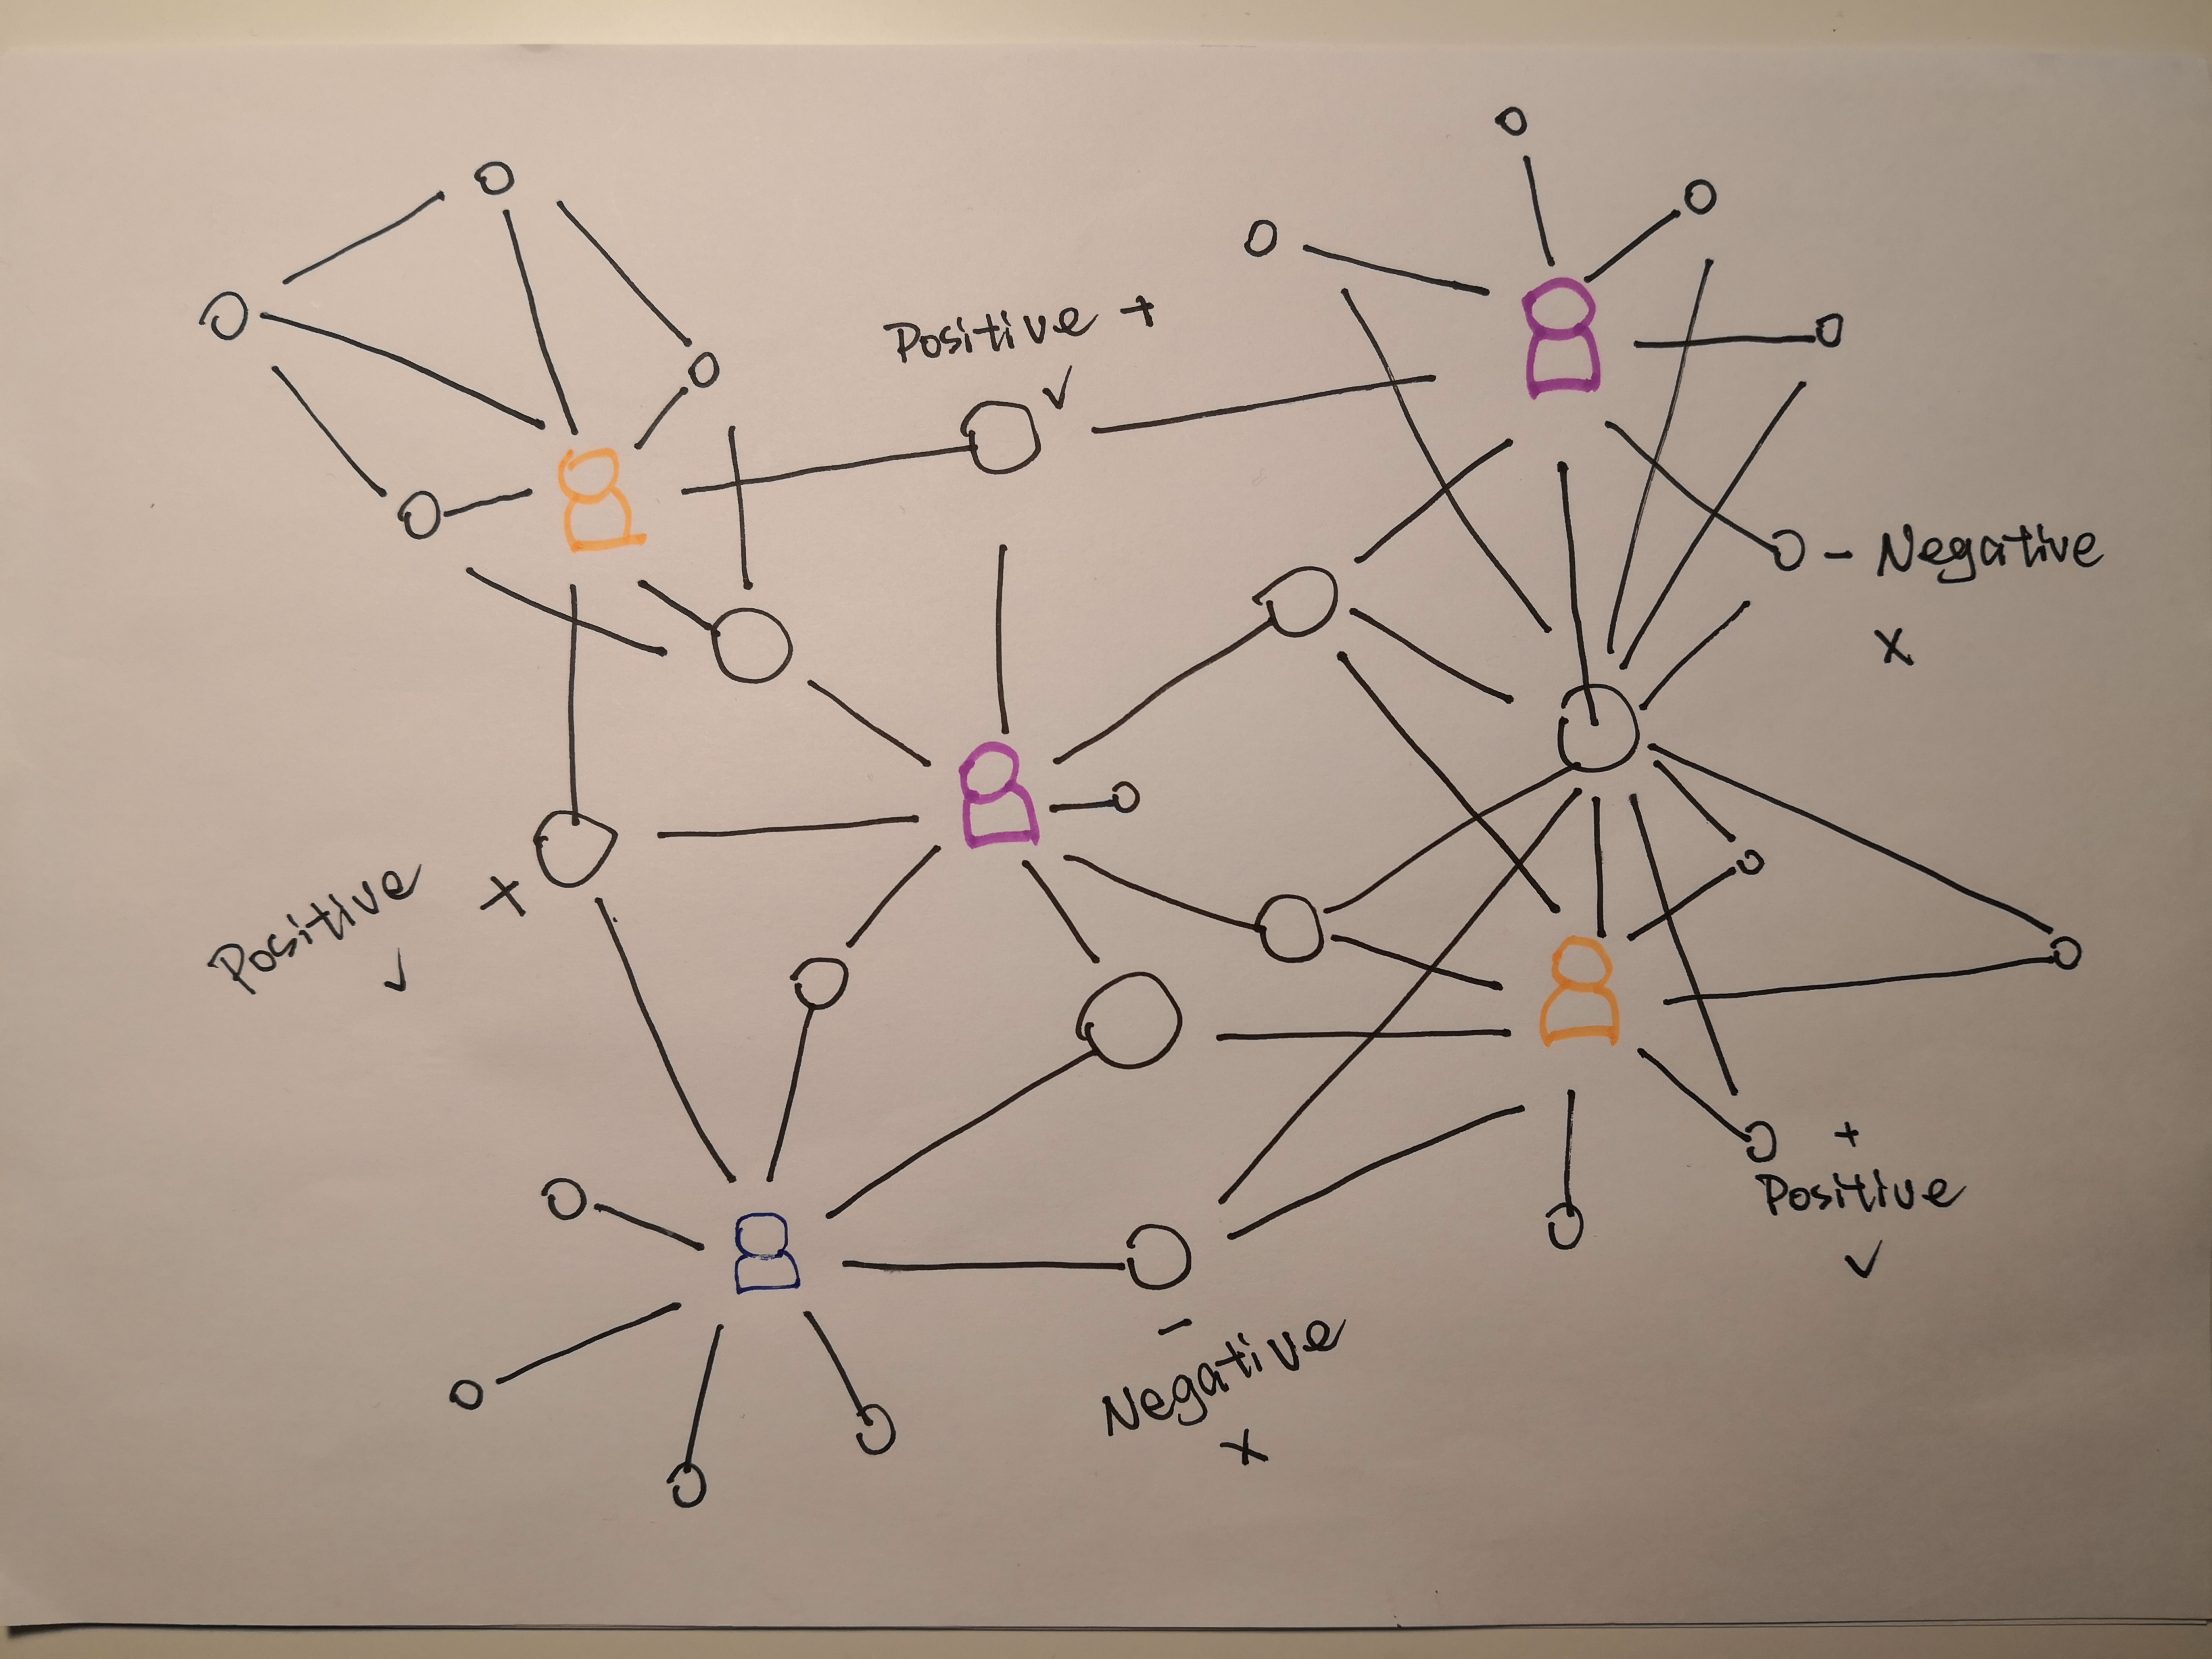 Positive +
✓
- Negative
x
Positive +
✓
+
Positive
✓
-
Negative
x